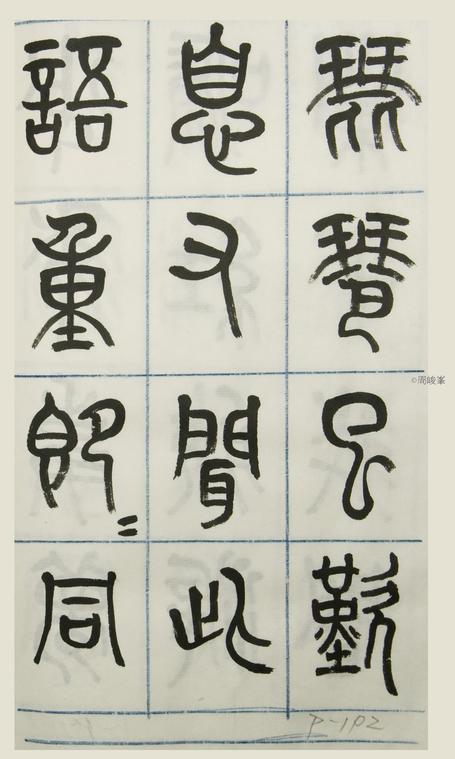 琵琶已歎
息又聞此
語重即〻同
©周峻峯
P-102